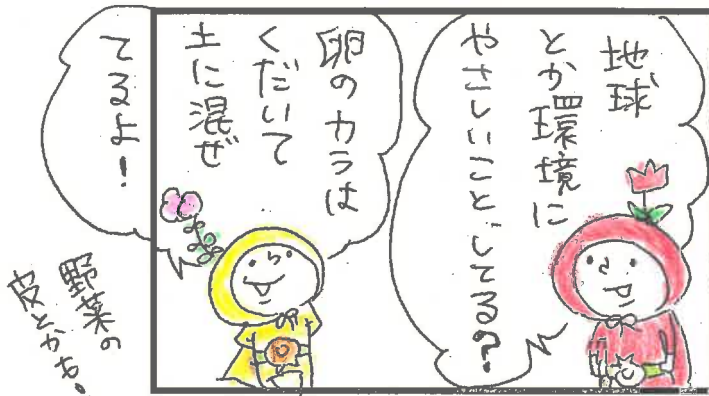 地球
とか環境に
やさしいことしてるの?
卵のカラは
くだいて
土に混ぜ
てるよ!
野菜の
皮とかも。